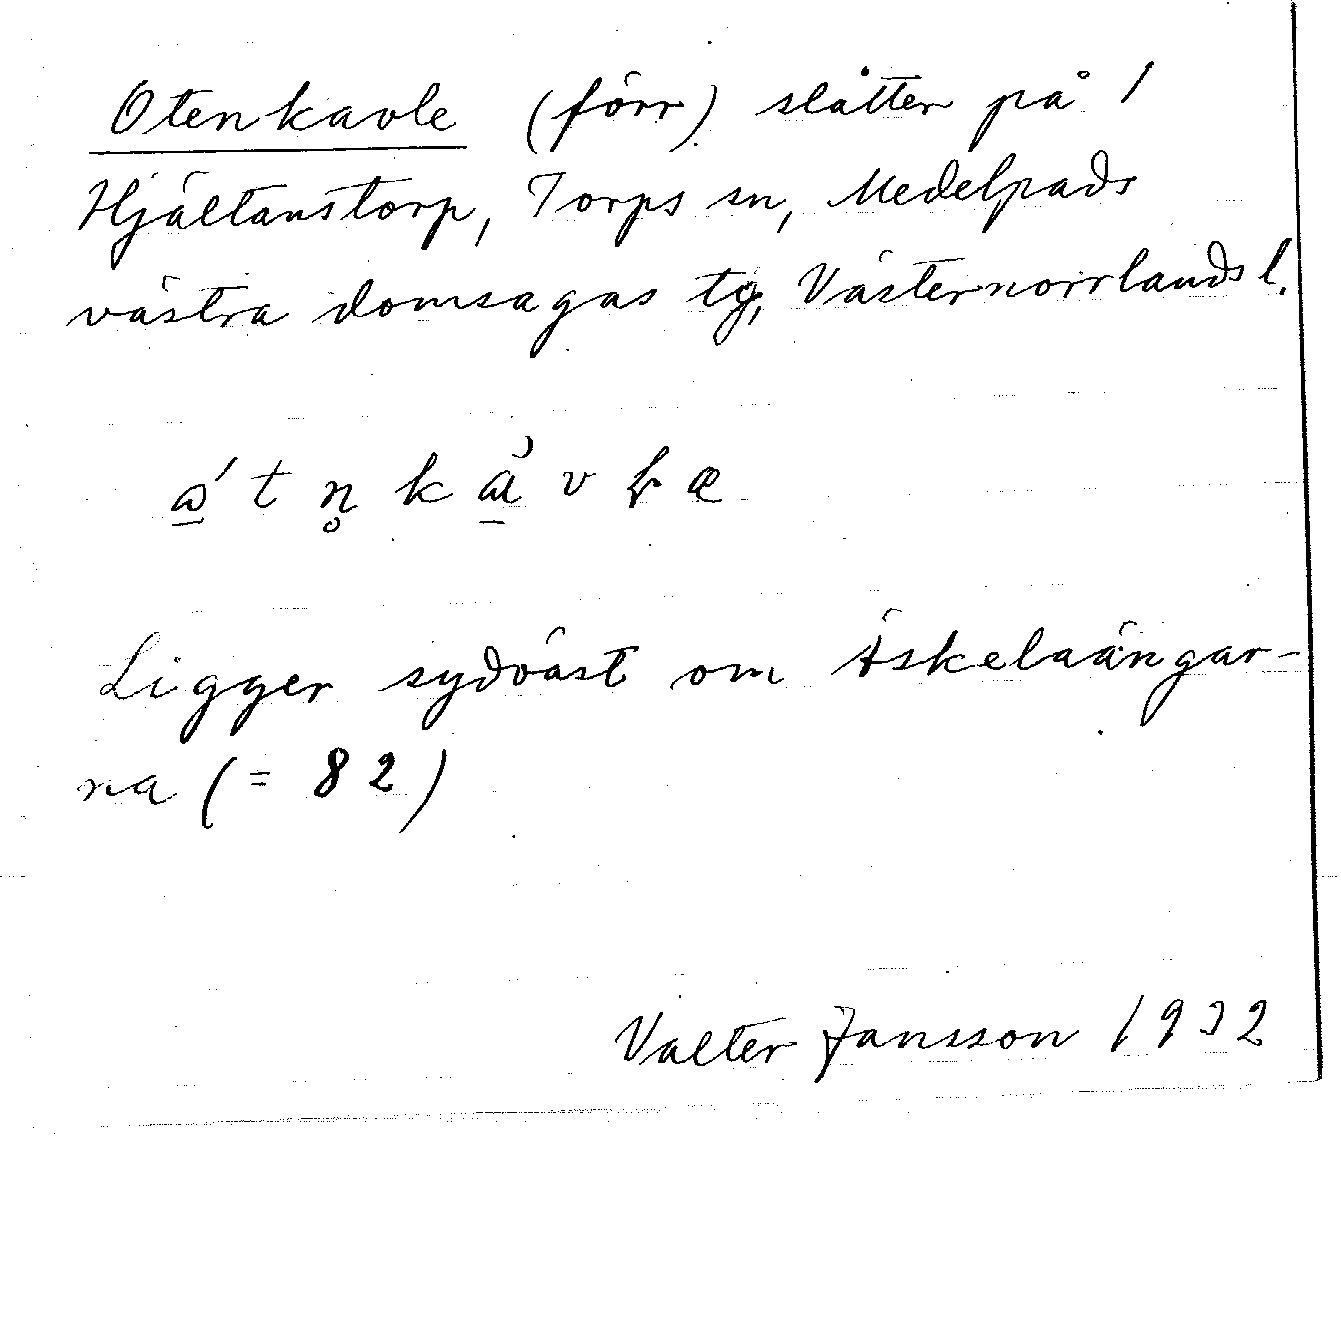 Otenkavle (förr) slåtter på 1
Hjältanstorp, Torps sn, Medelpads
västra domsagas tg, Västernorrlands l.
t n̥ k v
Ligger sydväst om Äskelaängar-
na (= 82)
Valter Jansson 1932